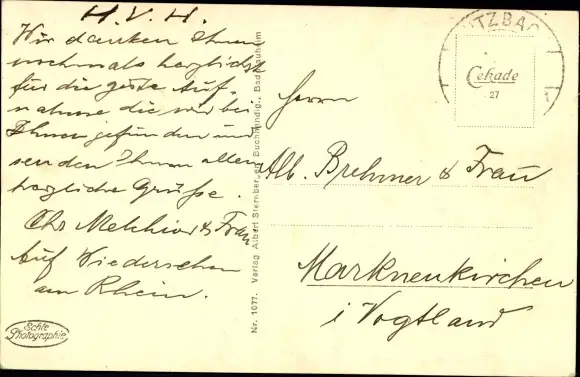 H. V. H.
Wir danken Ihnen
nochmals herzlichst
für die gute Auf-
nahme die wir bei
Ihnen gefunden und
senden Ihnen allen
herzliche Grüße.
Chr Melchior & Frau
Auf Wiedersehen
am Rhein.
Echte
Photographie
Nr. 1077. Verlag Albert Sternberger, Buchhändlg., Bad Nauheim
UTZBAC
Cekade
27
Herrn
Alb. Brehmer & Frau
Markneukirchen
i Vogtland